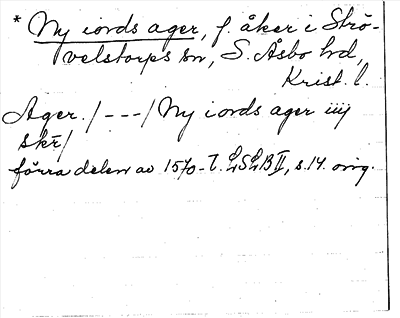 * Ny iords ager, f. åker i Strö-
velstorps sn, S. Åsbo hd,
Krist. l.
Ager. / - - - / Ny iords ager iiij
skr /
förra delen av 1570-t. LSLB II, s. 14. orig.